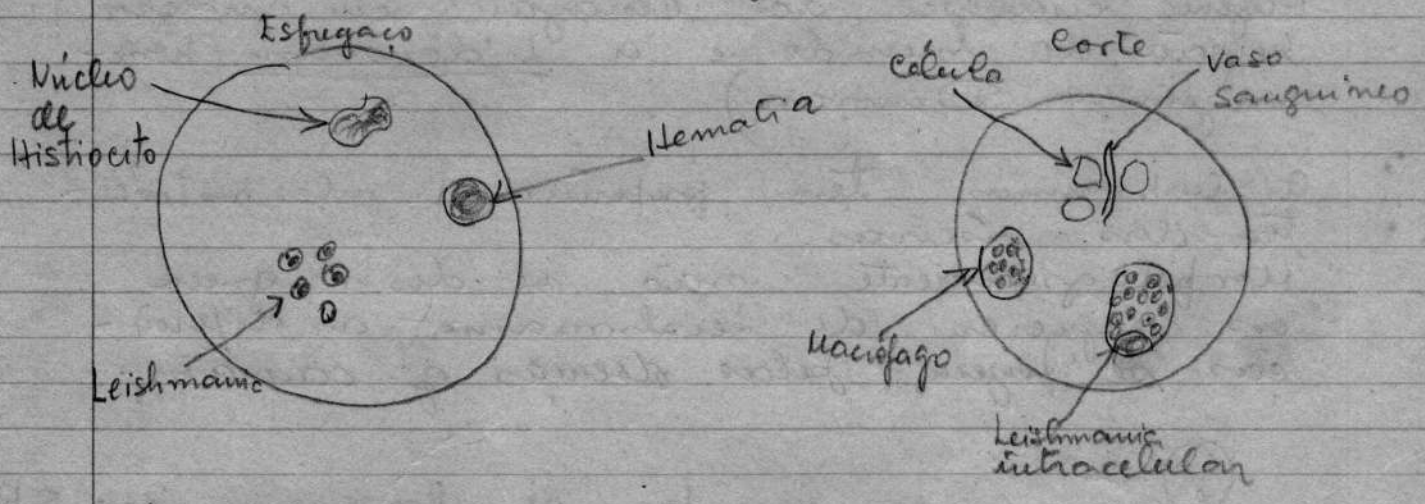 Esfregaço
Núcleo
de
Histiocito
Hematia
Leishmania
Corte
Célula
Vaso
Sanguineo
Macrófago
Leishmania
intracelular